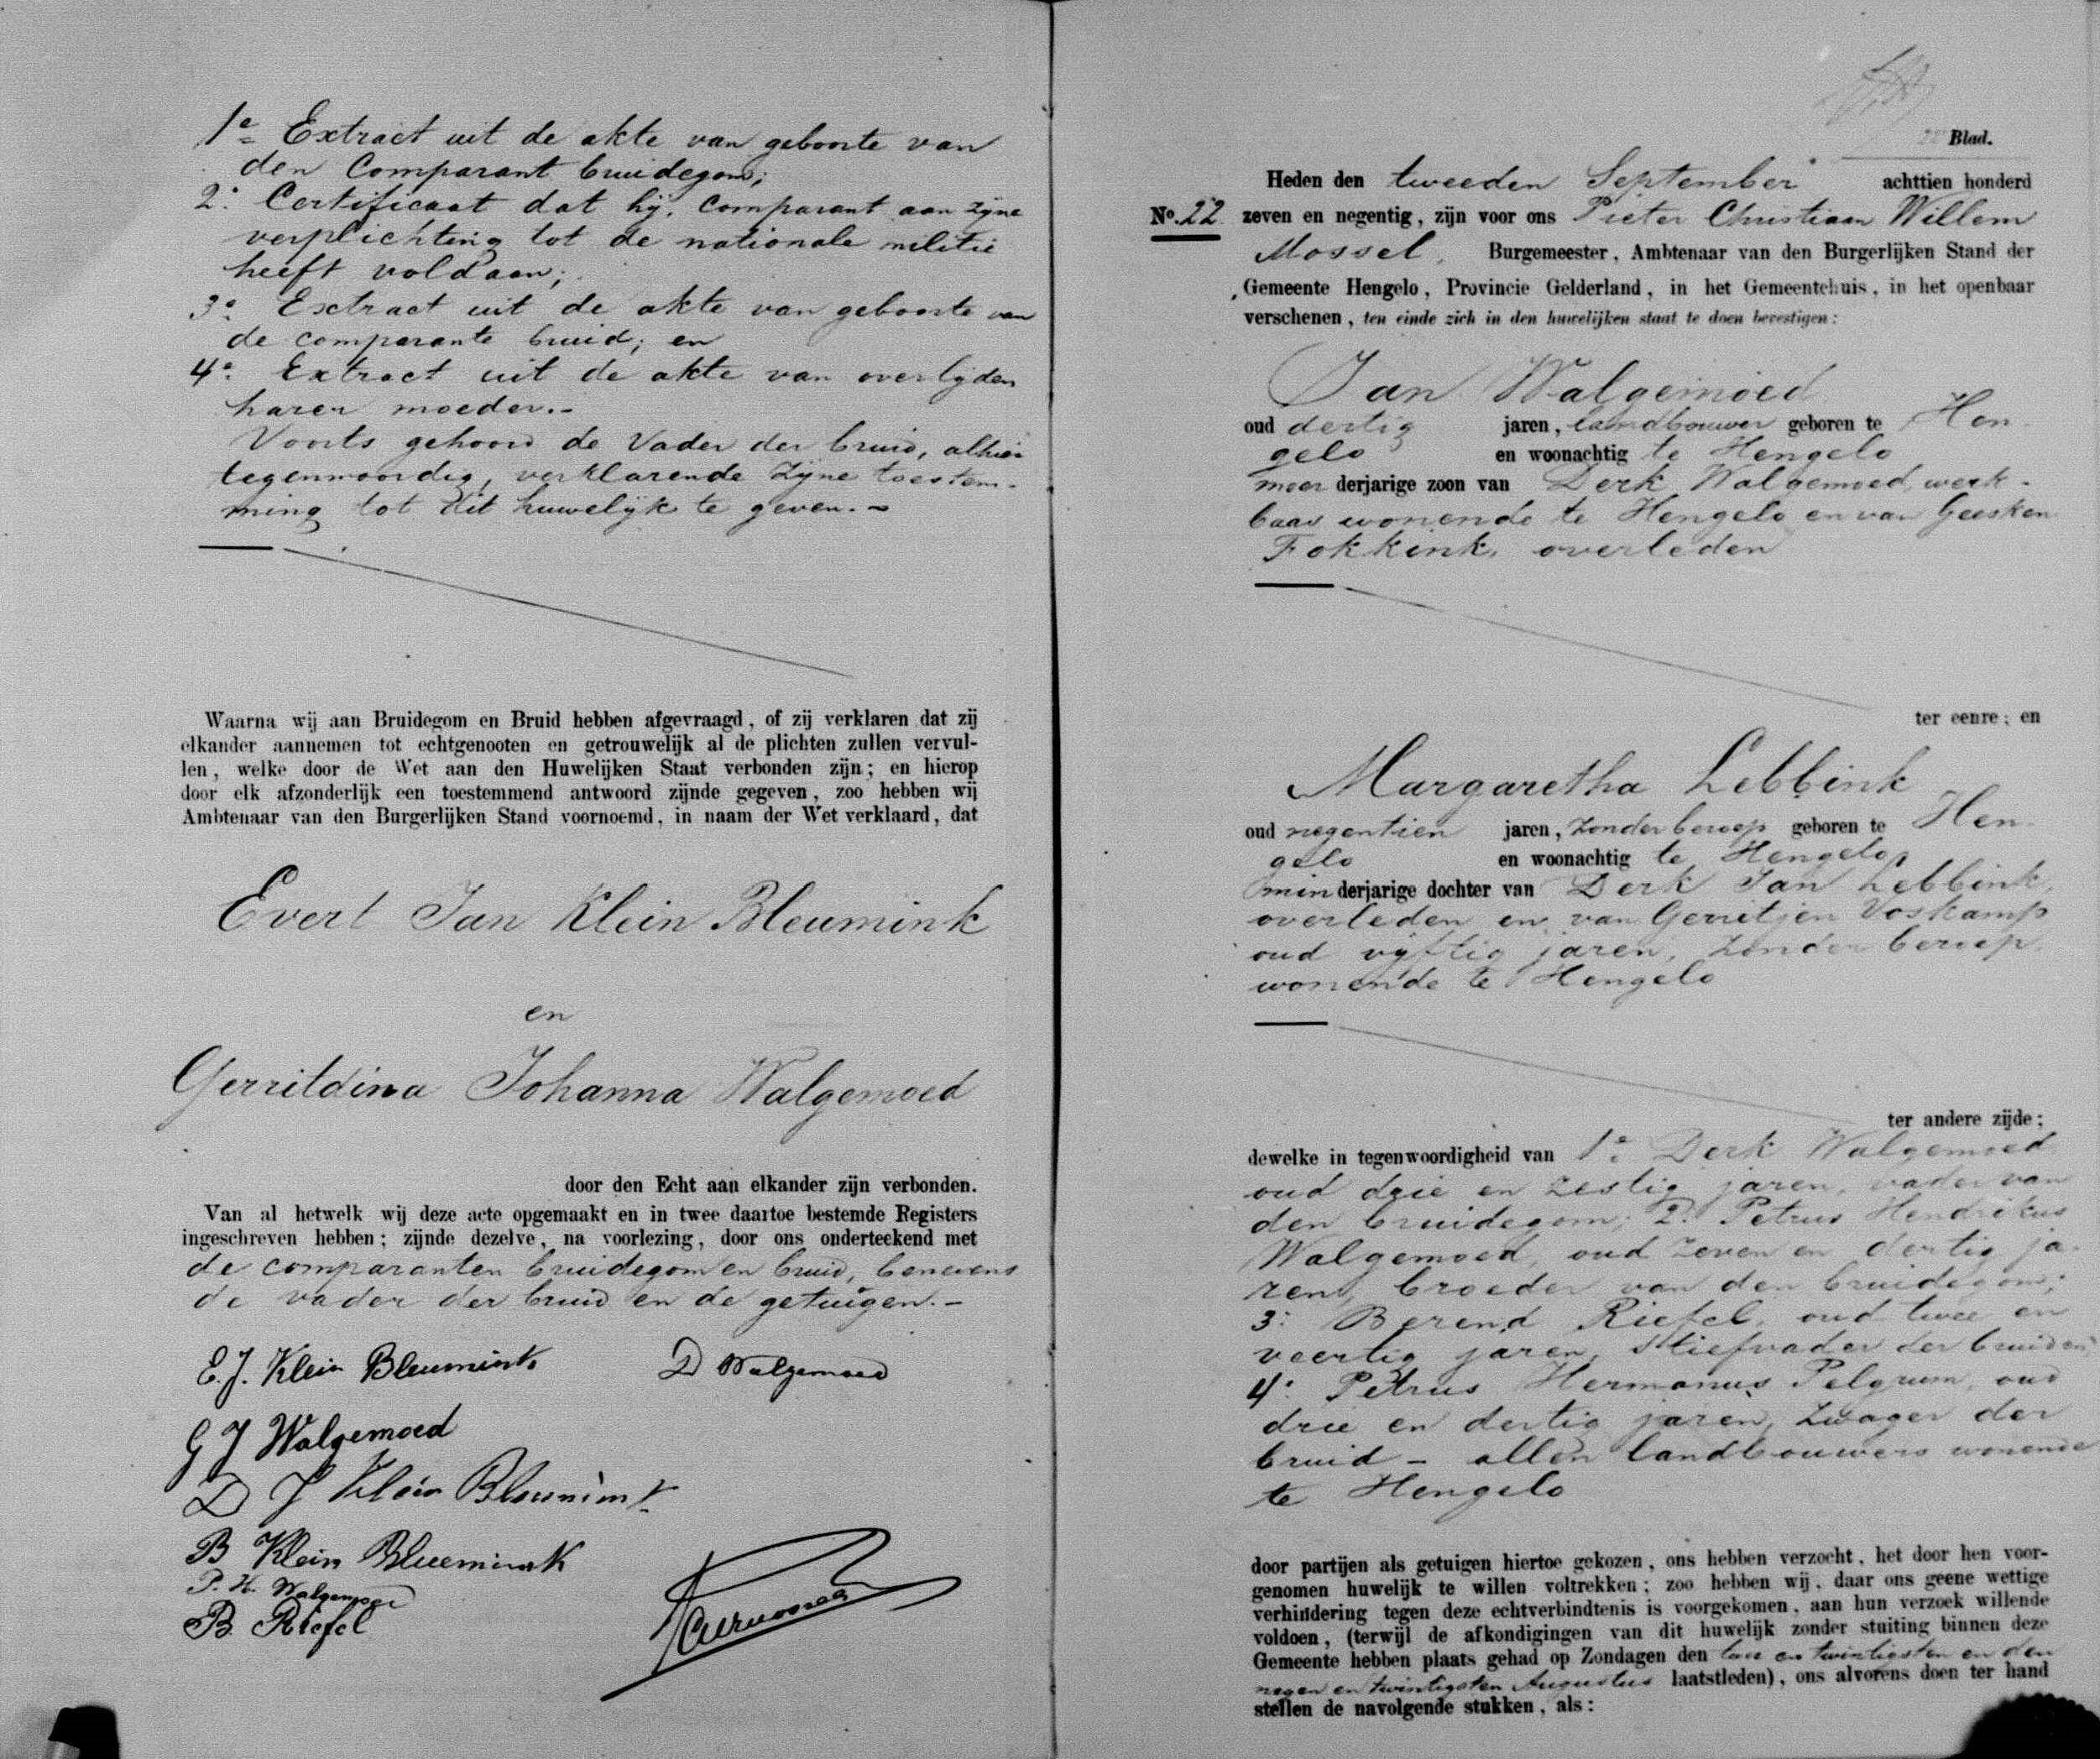 1e Extract uit de akte van geboorte van
den Comparant bruidegom;
2e Certificaat dat hij, Comparant aan zijne
verplichting tot de nationale militie
heeft voldaan;
3e Extract uit de akte van geboorte van
de comparante bruid; en
4e Extract uit de akte van overlijden
harer moeder.-
Voorts gehoord de Vader der bruid, alhier
tegenwoordig, verklarende zijne toestem-
ming tot dit huwelijk te geven.-
Waarna wij aan Bruidegom en Bruid hebben afgevraagd, of zij verklaren dat zij
elkander aannemen tot echtgenooten en getrouwelijk al de plichten zullen vervul-
len, welke door de Wet aan den Huwelijken Staat verbonden zijn; en hierop
door elk afzonderlijk een toestemmend antwoord zijnde gegeven, zoo hebben wij
Ambtenaar van den Burgerlijken Stand voornoemd, in naam der Wet verklaard, dat
Evert Jan Klein Bleumink
en
Gerritdina Johanna Walgemoed
door den Echt aan elkander zijn verbonden.
Van al hetwelk wij deze acte opgemaakt en in twee daartoe bestemde Registers
ingeschreven hebben; zijnde dezelve, na voorlezing, door ons onderteekend met
de comparanten bruidegom en bruid, benevens
de vader der bruid en de getuigen.-
E. J. Klein Bleumink D Walgemoed
G J Walgemoed
D J Klein Bleumink
B Klein Bleumink
P. H. Walgemoed
B. Riefel
Blad.
Heden den tweeden September achttien honderd
No. 22 zeven en negentig, zijn voor ons Pieter Christiaan Willem
Mossel, Burgemeester, Ambtenaar van den Burgerlijken Stand der
Gemeente Hengelo, Provincie Gelderland, in het Gemeentehuis, in het openbaar
verschenen, ten einde zich in den huwelijken staat te doen bevestigen:
Jan Walgemoed
oud dertig jaren, landbouwer geboren te Hen-
gelo en woonachtig te Hengelo
meer derjarige zoon van Derk Walgemoed, werk-
baas wonende te Hengelo en van Geesken
Fokkink, overleden
ter eenre; en
Margaretha Lebbink
oud negentien jaren, zonder beroep geboren te Hen-
gelo en woonachtig te Hengelo,
min derjarige dochter van Derk Jan Lebbink,
overleden en van Gerritjen Voskamp
oud vijftig jaren, zonder beroep,
wonende te Hengelo
ter andere zijde;
dewelke in tegenwoordigheid van 1e Derk Walgemoed
oud drie en zestig jaren, vader van
den bruidegom; 2e Petrus Hendrikus
Walgemoed, oud zeven en dertig ja-
ren, broeder van den bruidegom;
3e Berend Riefel, oud twee en
veertig jaren, stiefvader der bruid en
4e Petrus Hermanus Pelgrum, oud
drie en dertig jaren, zwager der
bruid - allen landbouwers wonende
te Hengelo
door partijen als getuigen hiertoe gekozen, ons hebben verzocht, het door hen voor-
genomen huwelijk te willen voltrekken; zoo hebben wij, daar ons geene wettige
verhindering tegen deze echtverbindtenis is voorgekomen, aan hun verzoek willende
voldoen, (terwijl de afkondigingen van dit huwelijk zonder stuiting binnen deze
Gemeente hebben plaats gehad op Zondagen den twee en twintigsten en den
negen en twintigsten Augustus laatstleden), ons alvorens doen ter hand
stellen de navolgende stukken, als: